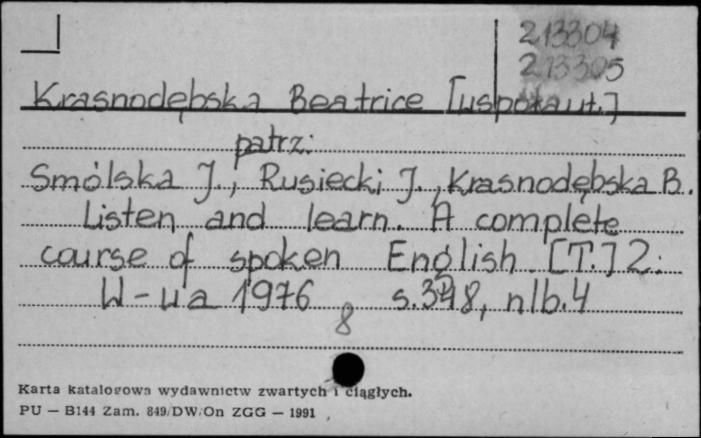 213304
213305
Krasnodębska Beatrice [współaut.]
patrz:
Smólska J., Rusiecki J., Krasnodębska B.
Listen and learn. A complete
course of spoken English. [T.] 2.
W-wa 1976 s.348, nlb.4
8
Karta katalogowa wydawnictw zwartych i ciągłych.
PU — B144 Zam. 849/DW/On ZGG — 1991